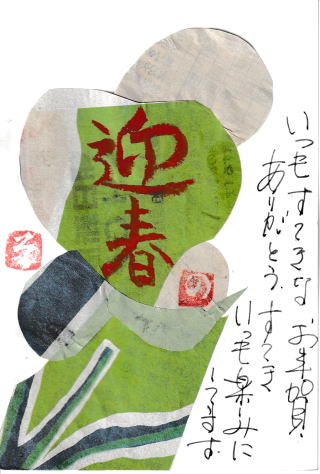 迎春
いつもすてきなお年賀、
ありがとう。すてき
いつも楽しみに
してます。